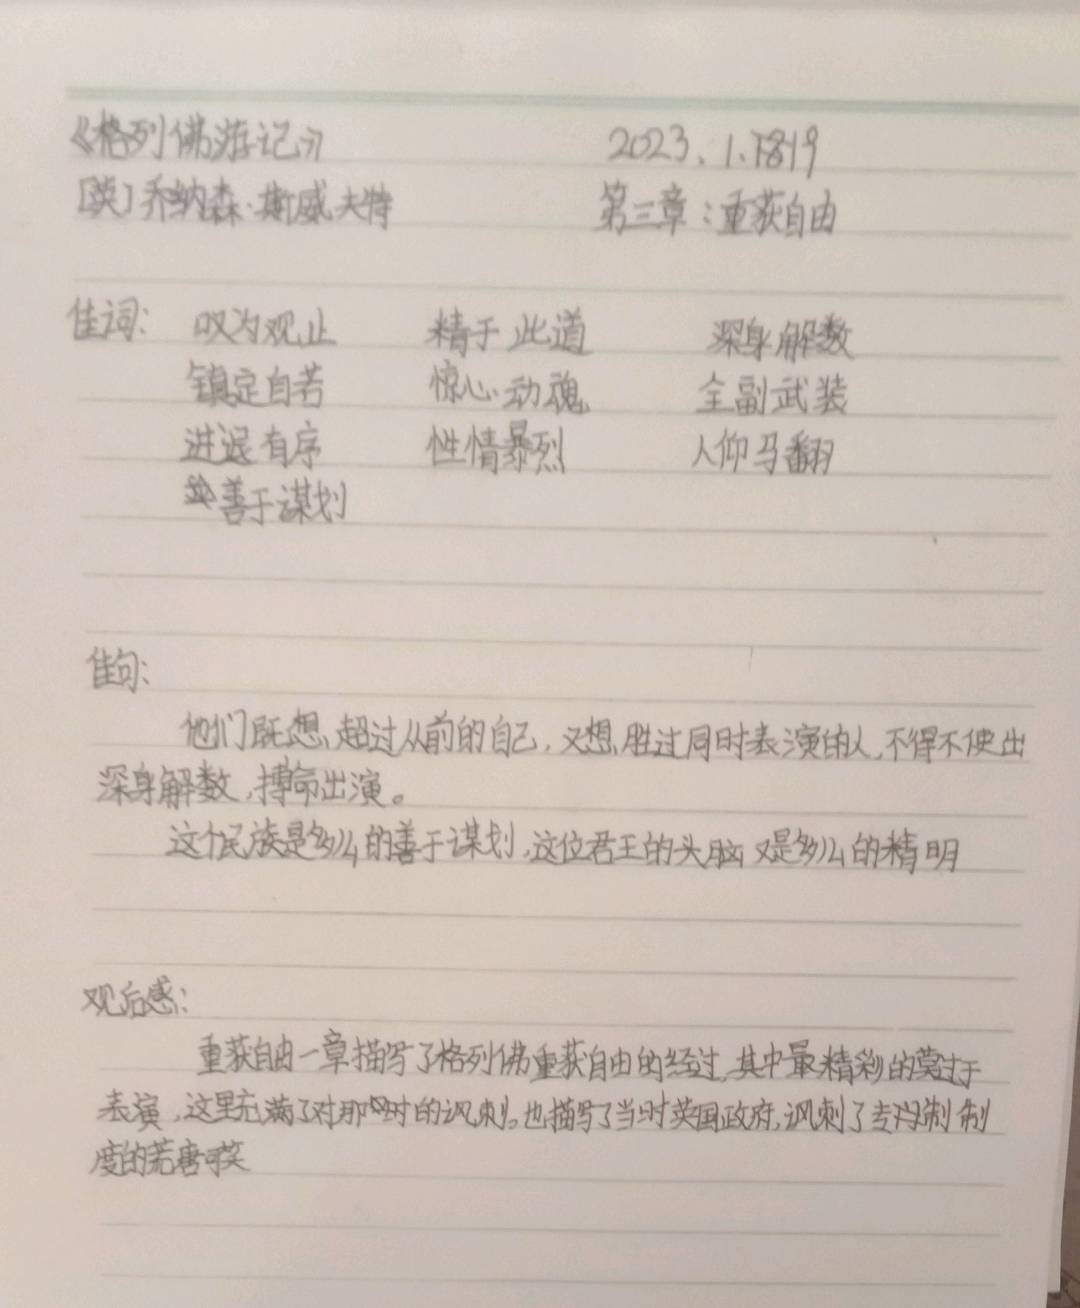 《格列佛游记》 2023.1.1819
[英]乔纳森·斯威夫特 第三章：重获自由
佳词： 叹为观止 精于此道 深身解数
镇定自若 惊心动魂 全副武装
进退有序 性情暴烈 人仰马翻
善于谋划
佳句：
他们既想超过从前的自己，又想胜过同时表演的人，不得不使出
深身解数，搏命出演。
这个民族是多么的善于谋划，这位君王的头脑又是多么的精明
观后感：
重获自由一章描写了格列佛重获自由的经过，其中最精彩的莫过于
表演，这里充满了对那时的讽刺。也描写了当时英国政府，讽刺了专制制
度的荒唐可笑